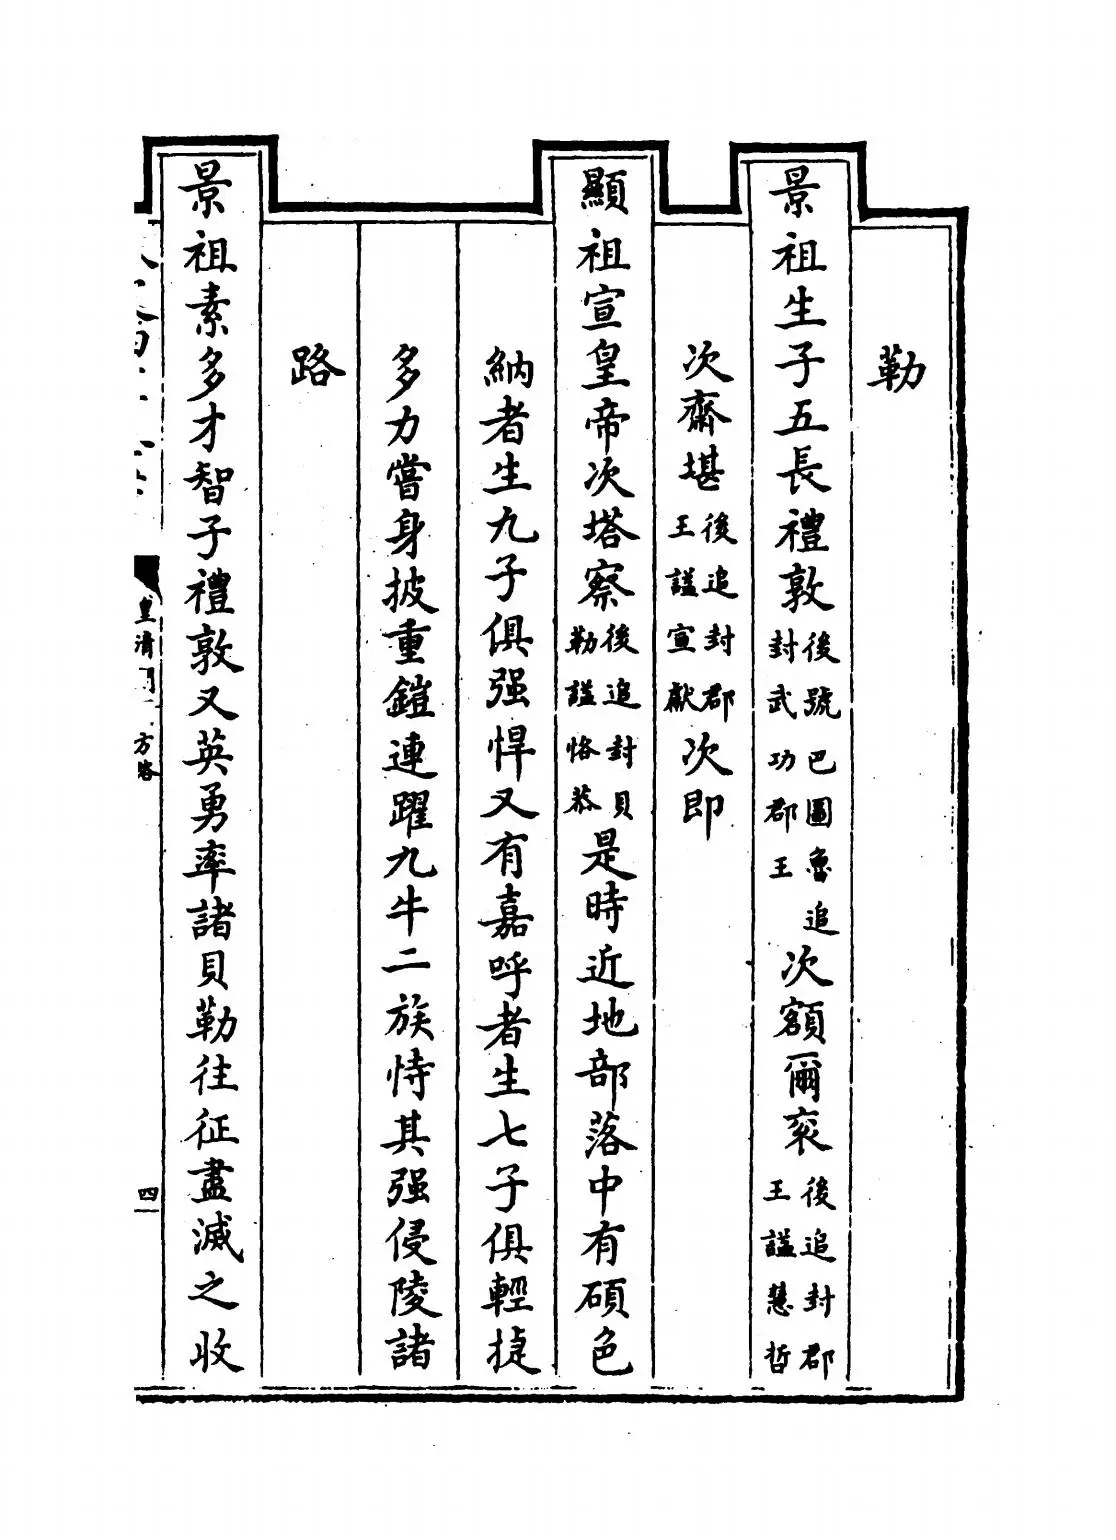 勒
景祖生子五長禮敦後號巴圖魯追封武功郡王次額爾衮後追封郡王諡慧哲
次齋堪後追封郡王諡宣獻次即
顯祖宣皇帝次塔察後追封貝勒諡恪恭是時近地部落中有碩色
納者生九子俱强悍又有嘉呼者生七子俱輕捷
多力嘗身披重鎧連躍九牛二族恃其强侵陵諸
路
景祖素多才智子禮敦又英勇率諸貝勒往征盡滅之收
皇清開方略
四